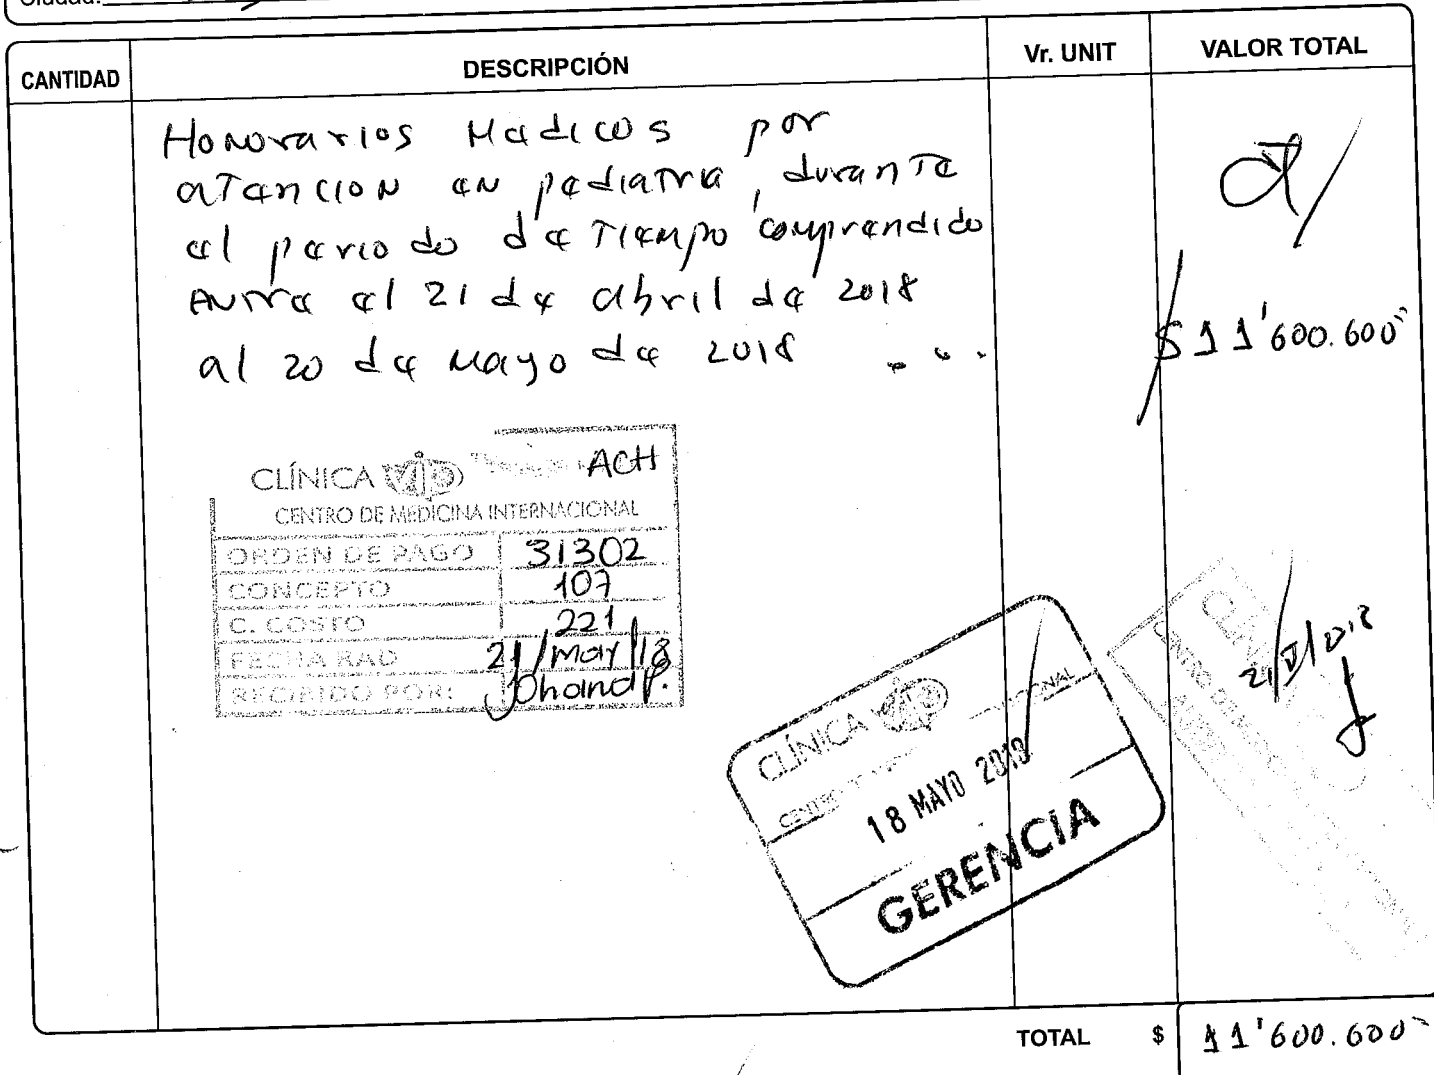 Ciudad:
CANTIDAD DESCRIPCIÓN Vr. UNIT VALOR TOTAL
Honorarios Medicos por
atencion en pediatria, durante
el periodo de tiempo comprendido
entre el 21 de abril de 2018
al 20 de Mayo de 2018 ...
$ 11'600.600
CLÍNICA VIP ACH
CENTRO DE MEDICINA INTERNACIONAL
ORDEN DE PAGO 31302
CONCEPTO 107
C. COSTO 221
FECHA RAD 21/may/18
RECIBIDO POR: Johana P.
21/V/2018
CLÍNICA VIP
CENTRO
18 MAYO 2018
GERENCIA
TOTAL $ 11'600.600